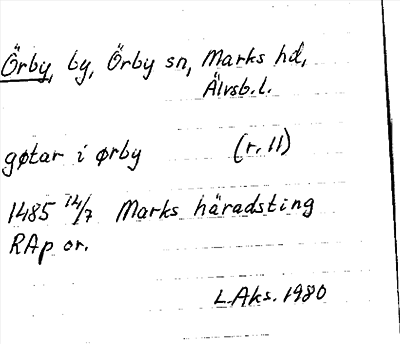 Örby, by, Örby sn, Marks hd,
Älvsb. l.
gøtar i ørby (r. 11)
1485 14/7 Marks häradsting
RAp or.
LAks. 1980